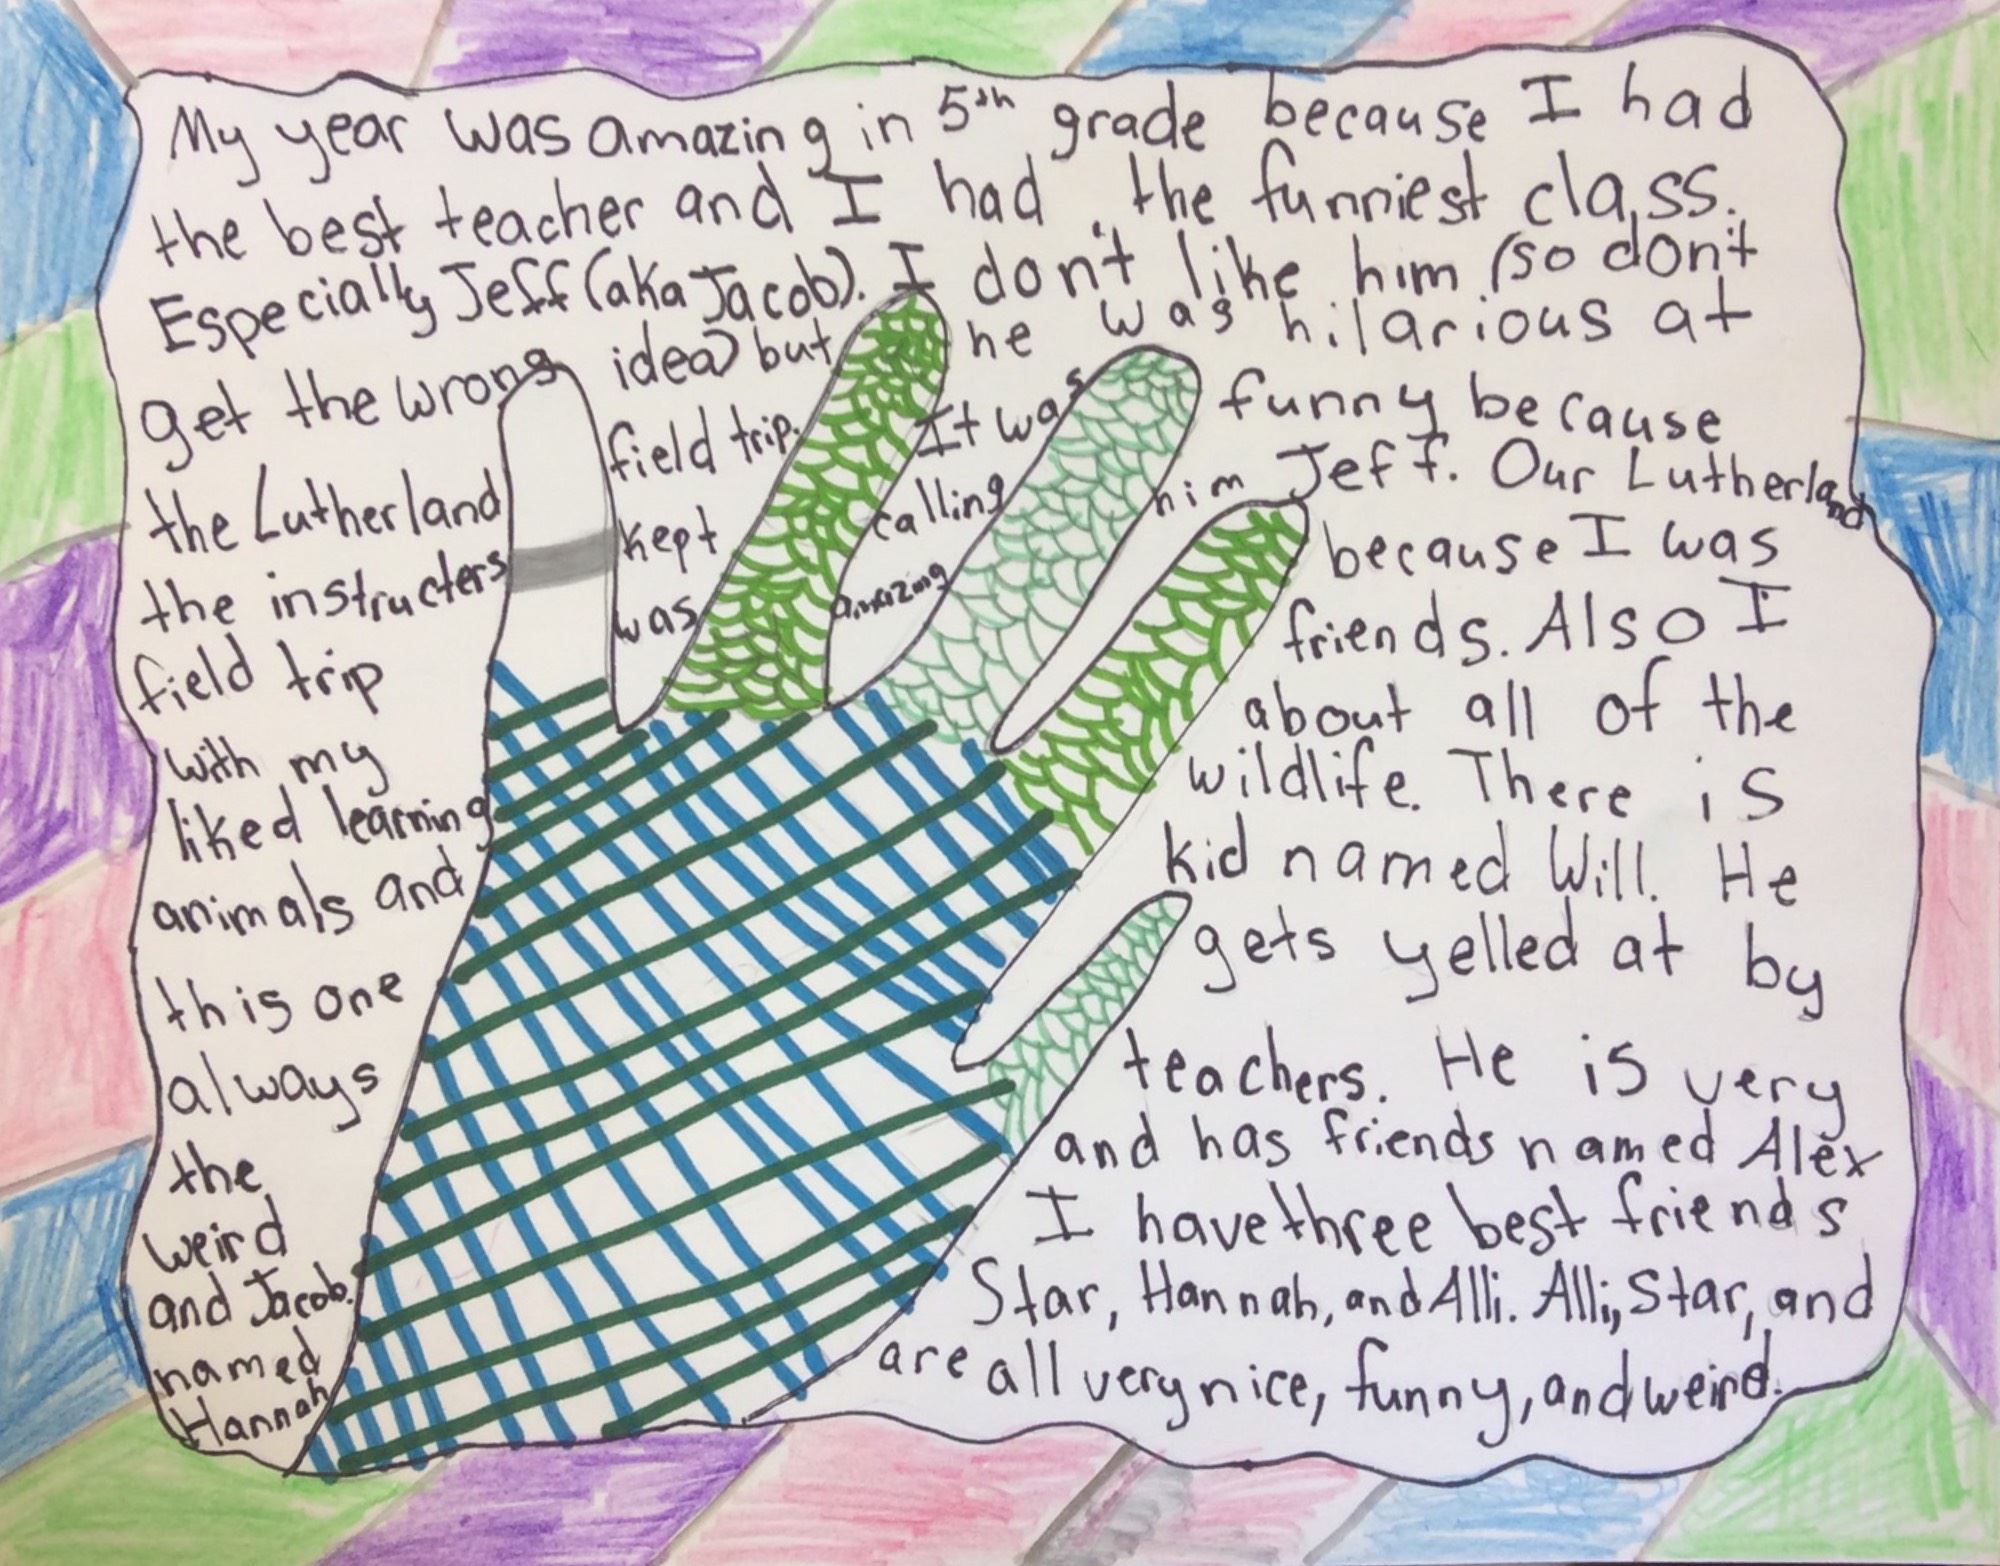 My year was amazing in 5th grade because I had
the best teacher and I had the funniest class.
Especially Jeff (aka Jacob). I don't like him (so don't
get the wrong idea) but he was hilarious at
the Lutherland field trip. It was funny because
the instructers kept calling him Jeff. Our Lutherland
field trip was amazing because I was
with my friends. Also I
liked learning about all of the
animals and wildlife. There is
this one kid named Will. He
always gets yelled at by
the teachers. He is very
weird and has friends named Alex
and Jacob. I have three best friends
named Star, Hannah, and Alli. Alli, Star, and
Hannah are all very nice, funny, and weird.